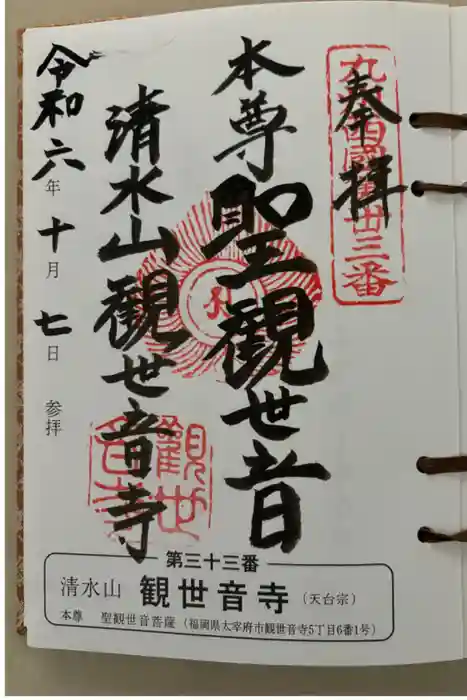 奉拝
九州西国第卅三番
本尊聖観世音
清水山観世音寺
観世音寺
令和六年十月七日参拝
第三十三番
清水山 観世音寺（天台宗）
本尊 聖観世音菩薩（福岡県太宰府市観世音寺5丁目6番1号）